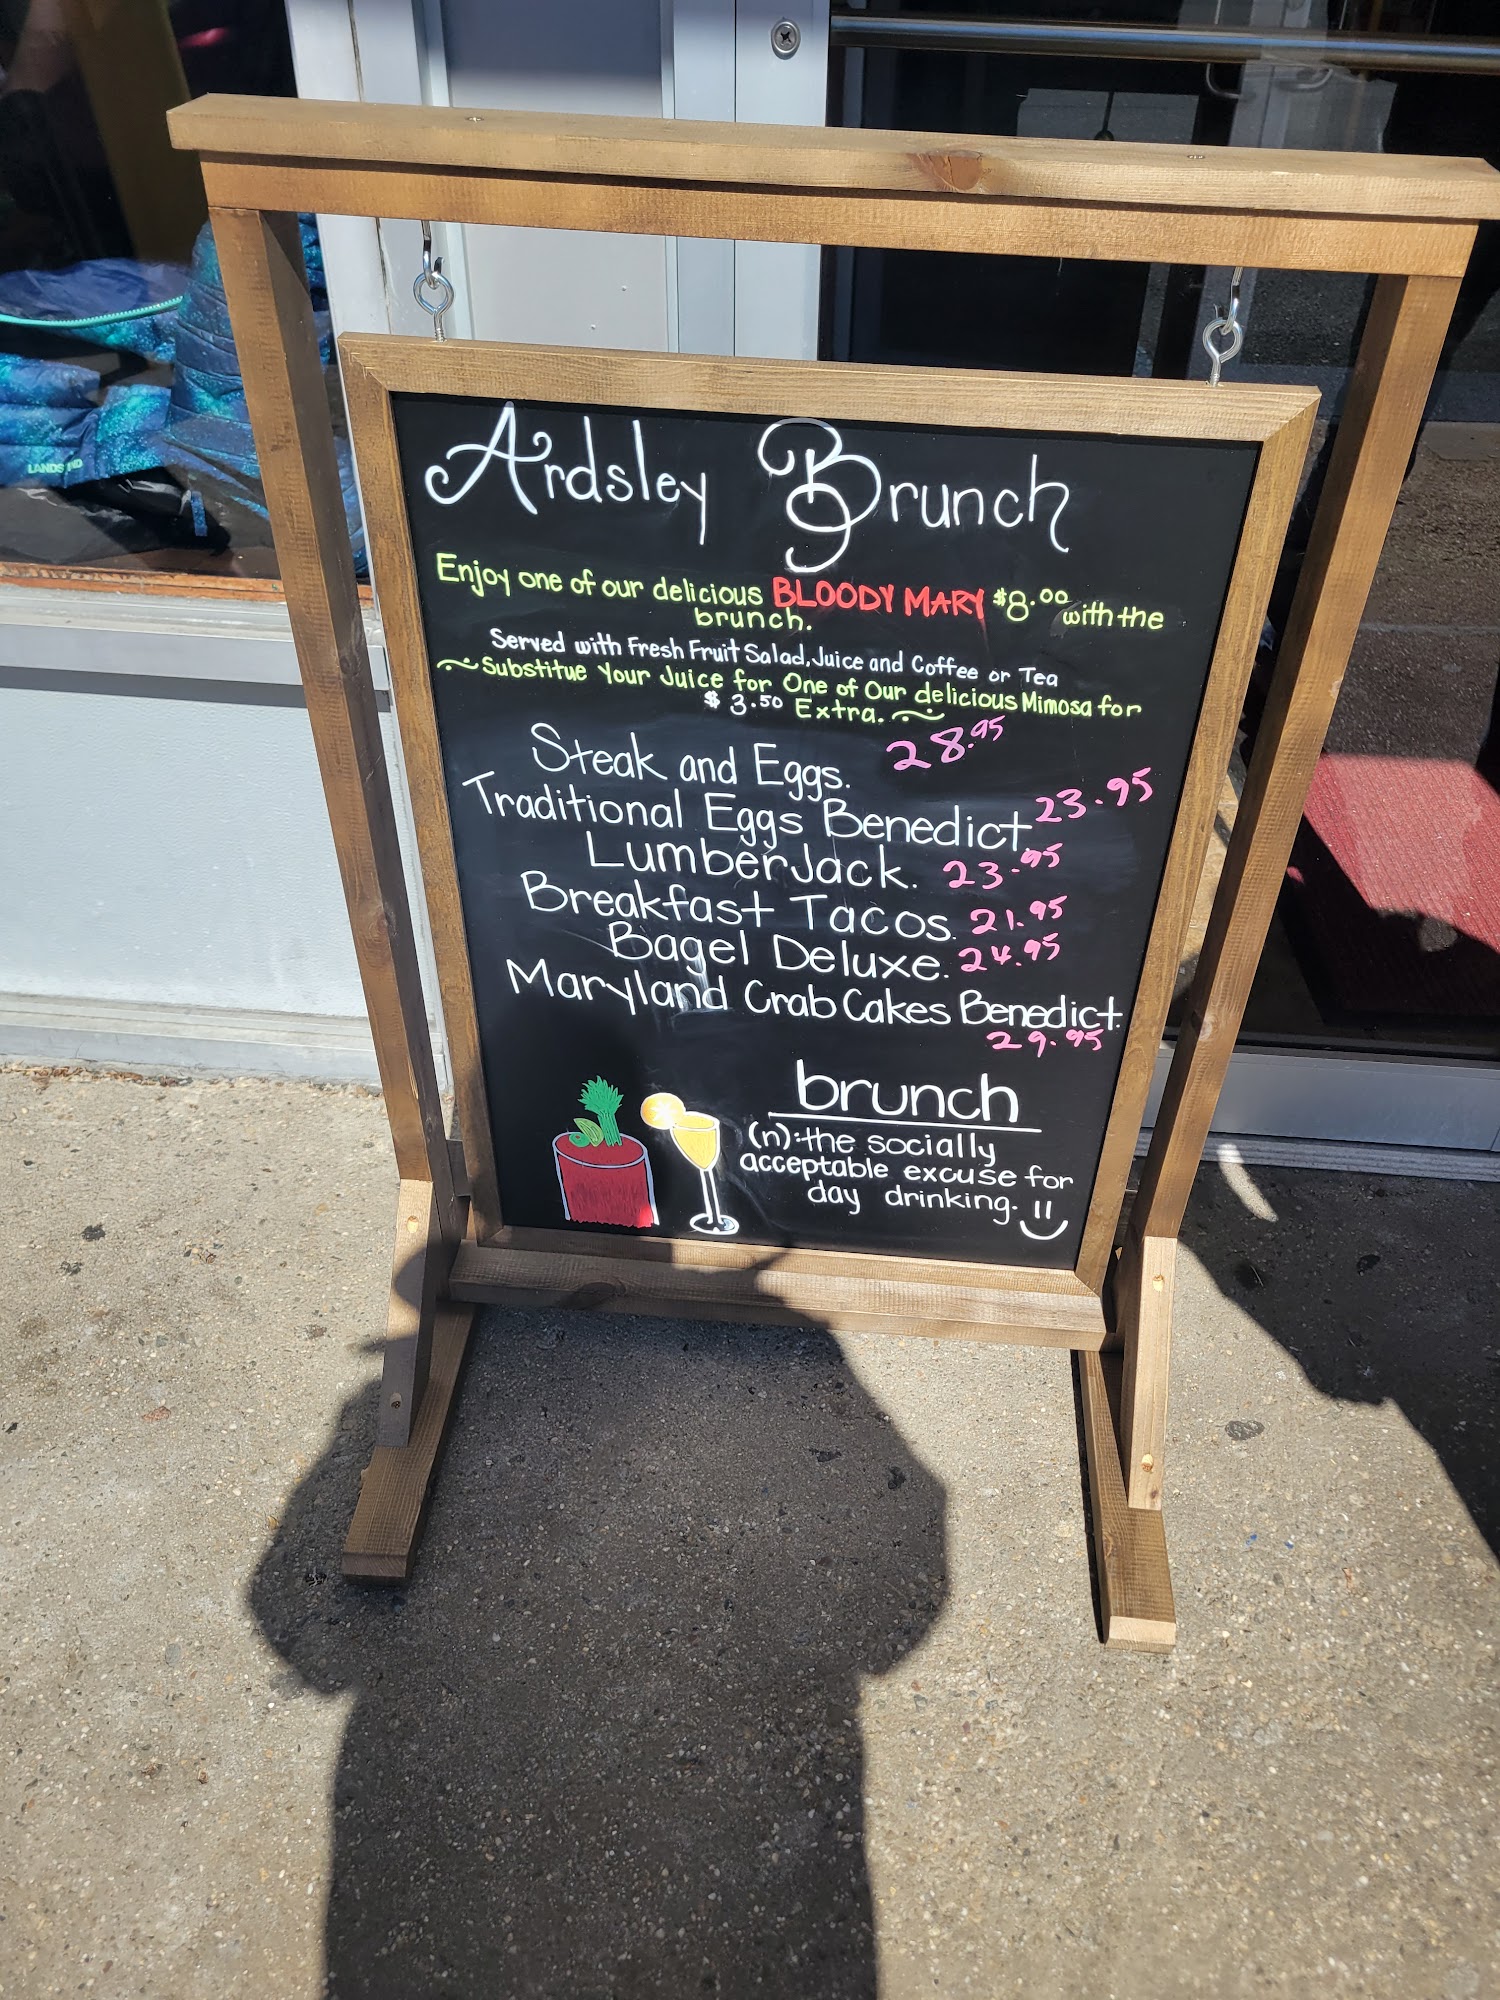 Ardsley Brunch
Enjoy one of our delicious BLOODY MARY $8.00 with the
brunch.
Served with Fresh Fruit Salad, Juice and Coffee or Tea
~Substitue Your Juice for One of Our delicious Mimosa for
$3.50 Extra.~
Steak and Eggs. 28.95
Traditional Eggs Benedict. 23.95
LumberJack. 23.95
Breakfast Tacos. 21.95
Bagel Deluxe. 24.95
Maryland Crab Cakes Benedict.
29.95
brunch
(n):the socially
acceptable excuse for
day drinking.